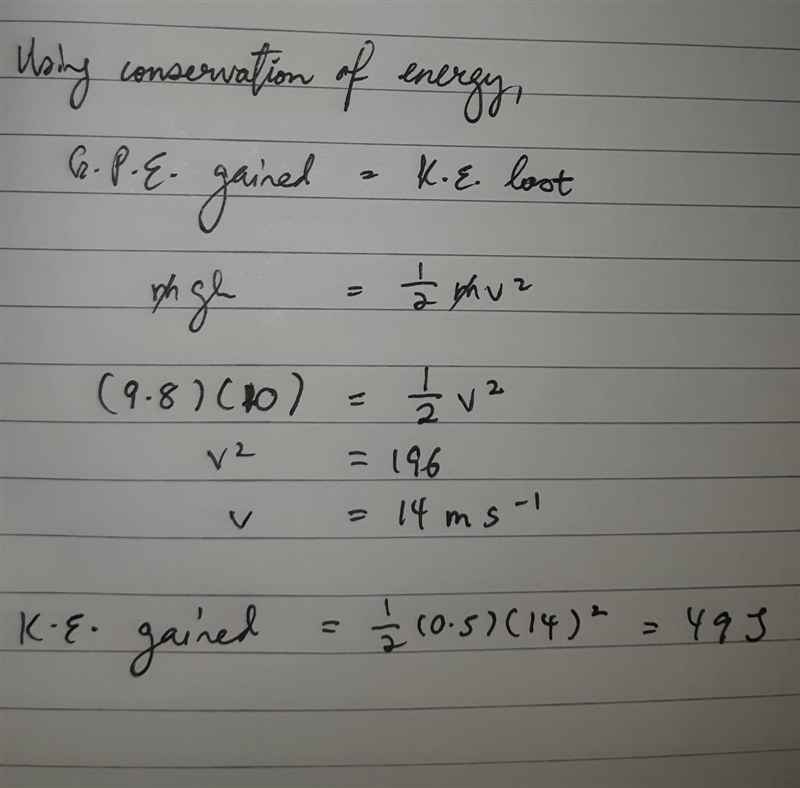 Using conservation of energy,
G.P.E. gained = K.E. lost
mgh = 1/2 mv²
(9.8)(10) = 1/2 v²
v² = 196
v = 14 m s⁻¹
K.E. gained = 1/2 (0.5)(14)² = 49J